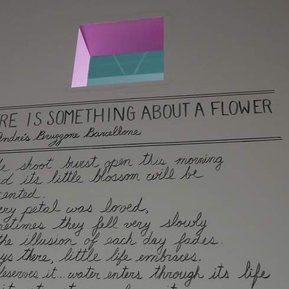 RE IS SOMETHING ABOUT A FLOWER
Andrés Bruzzone Barcellone
le shoot burst open this morning
d its little blossom will be
ented.
ery petal was loved,
metimes they fell very slowly
the illusion of each day fades.
ys there, little life embraces.
deserve it...water enters through its life